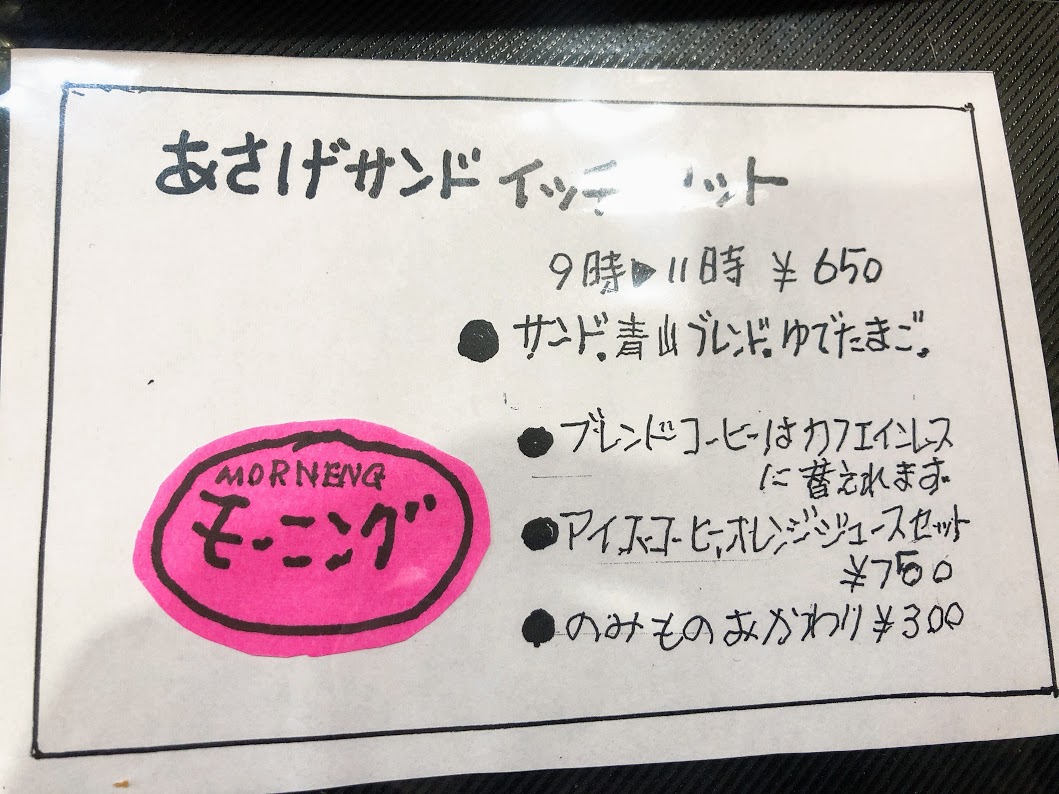 あさげサンドイッチセット
9時▶11時 ¥650
● サンド.青山ブレンド.ゆでたまご.
● ブレンドコーヒーはカフェインレス
に替えれます.
● アイスコーヒー.オレンジジュースセット
¥750
● のみものおかわり ¥300
MORNENG
モーニング